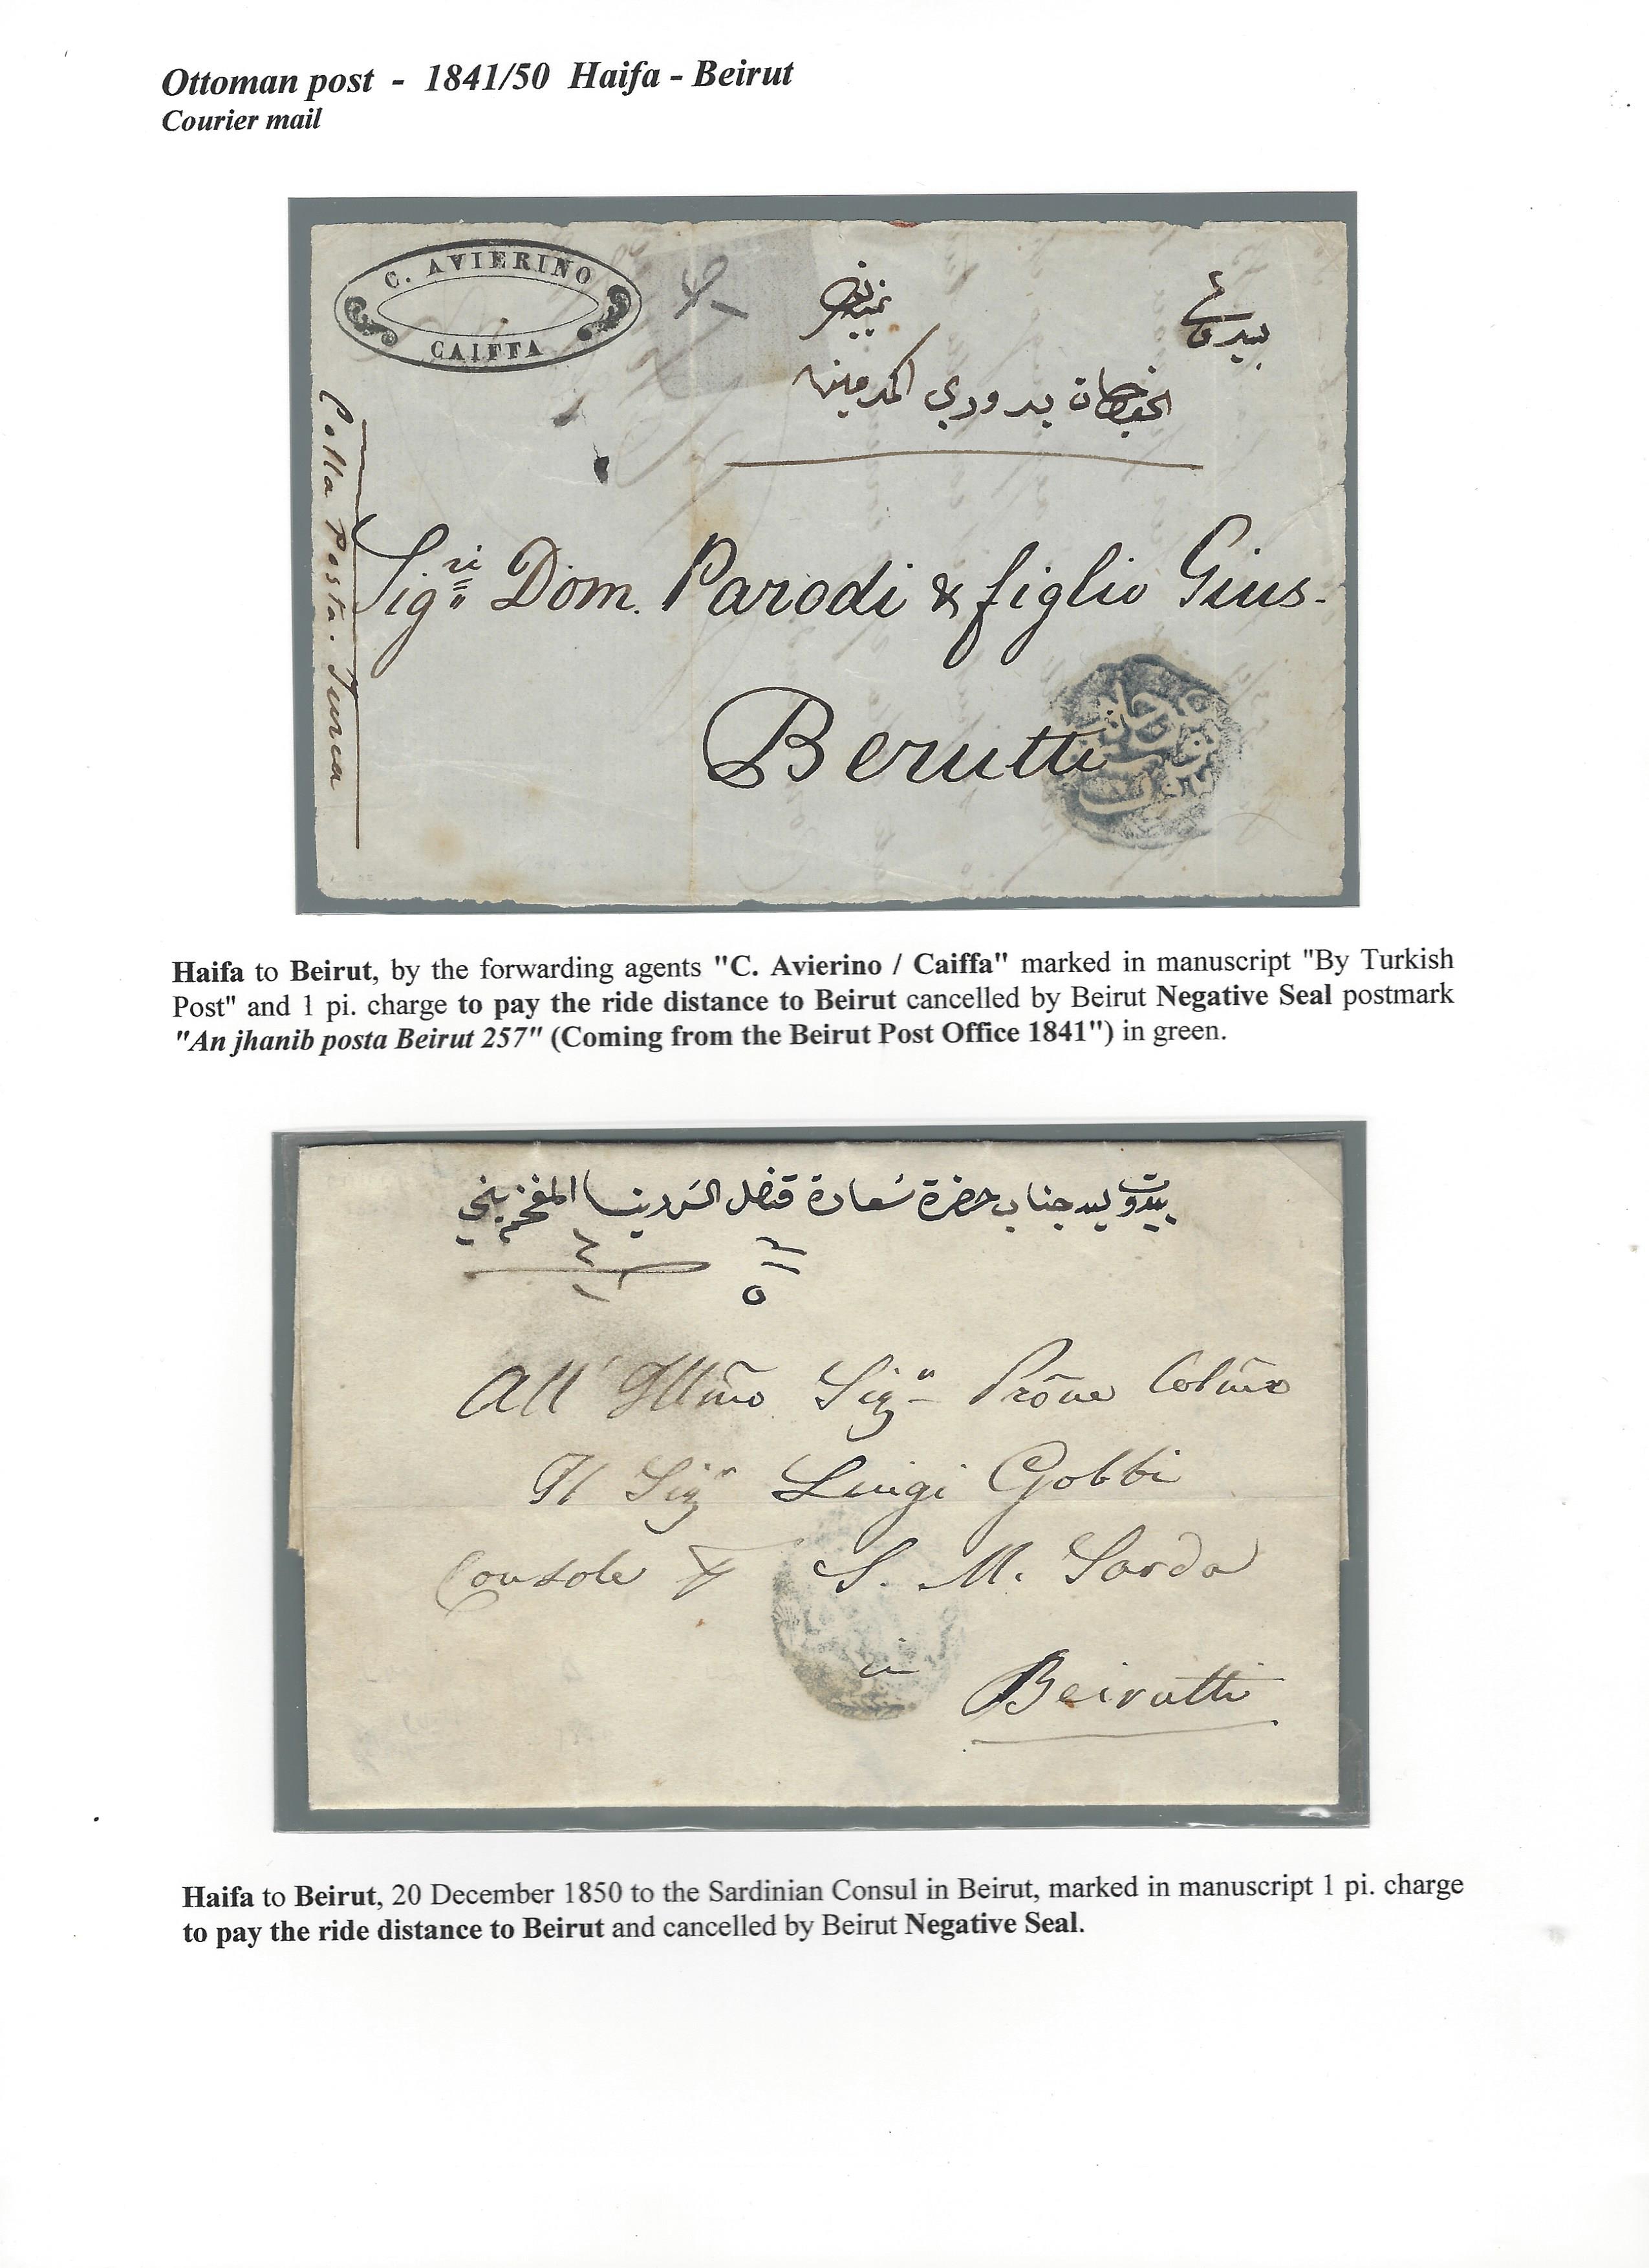 Ottoman post - 1841/50 Haifa - Beirut
Courier mail
C. AVIERINO
CAIFFA
بيروت
الخواجات بدوردي المحترمين
Colla Posta Turca
Sigri Dom. Parodi & figlio Gius.
Berutti
Haifa to Beirut, by the forwarding agents "C. Avierino / Caiffa" marked in manuscript "By Turkish
Post" and 1 pi. charge to pay the ride distance to Beirut cancelled by Beirut Negative Seal postmark
"An jhanib posta Beirut 257" (Coming from the Beirut Post Office 1841") in green.
بيروت ليد جناب حضرة سعادة قنصل السردينيا المفخم
All' Illmo Sigr Prone Colmo
Il Sigr Luigi Gobbi
Console S. M. Sarda
in
Beirutti
Haifa to Beirut, 20 December 1850 to the Sardinian Consul in Beirut, marked in manuscript 1 pi. charge
to pay the ride distance to Beirut and cancelled by Beirut Negative Seal.